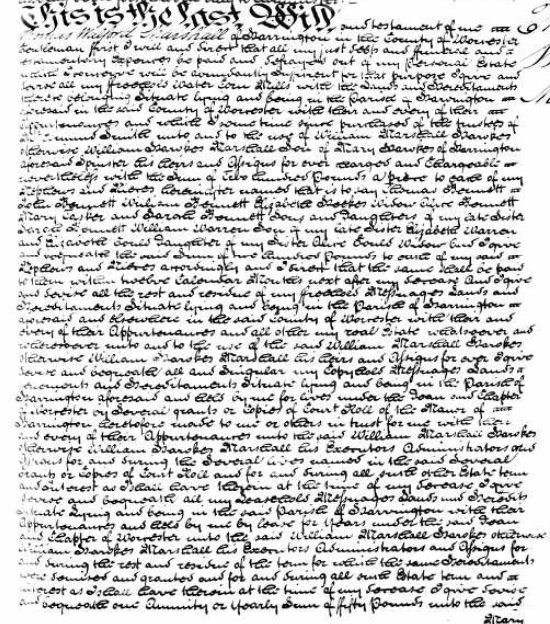 This is the last Will and testament of me
Thomas Wilford Marshall of Harrington in the County of Worcester
Gentleman ffirst I will and direct that all my just debts and funeral and
testamentary expences be paid and defrayed out of my personal Estate
which I conceive will be abundantly sufficient for that purpose I give and
devise all my ffreehold Water Corn Mills with the Lands and Hereditaments
thereto belonging situate lying and being in the Parish of Harrington
aforesaid in the said County of Worcester with their and every of their
Appurtenances and which I some time since purchased of the trustees of
Smith unto and to the use of William Marshall Harokes
otherwise William Harokes Marshall Son of Mary Harokes of Harrington
aforesaid Spinster his heirs and Assigns for ever charged and chargeable
nevertheless with the Sum of Two hundred Pounds a piece to each of my
Nephews and Nieces hereinafter named that is to say Thomas Bennett
John Bennett William Bennett Elizabeth Widow Alice Bennett
Mary and Sarah Bennett Sons and Daughters of my late Sister
Sarah Bennett William Warren Son of my late Sister Elizabeth Warren
and Elizabeth Gould Daughter of my Sister Alice Gould Widow and I give
and bequeath the said Sum of two hundred Pounds to each of my said
Nephews and Nieces accordingly and I direct that the same shall be paid
to them within twelve Calendar Months next after my decease And I give
and devise all the rest and residue of my ffreehold Messuages Lands and
Hereditaments situate lying and being in the Parish of Harrington
aforesaid and elsewhere in the said county of Worcester with their and
every of their Appurtenances and all other my real Estate whatsoever and
wheresoever unto and to the use of the said William Marshall Harokes
otherwise William Harokes Marshall his heirs and Assigns for ever I give
devise and bequeath all and singular my Copyhold Messuages Lands
tenements and Hereditaments situate lying and being in the Parish of
Harrington aforesaid and held by me for lives under the Dean and Chapter
of Worcester by several grants or Copies of Court Roll of the Manor of
Harrington heretofore made to me or others in trust for me with their
and every of their Appurtenances unto the said William Marshall Harokes
otherwise William Harokes Marshall his Executors Administrators and
Assigns for and during the several lives named in the said several
grants or Copies of Court Roll and for and during all such other Estate term
and interest as I shall have therein at the time of my decease I give
devise and bequeath all my Leasehold Messuages Lands and Heredits
situate lying and being in the said Parish of Harrington with their
Appurtenances and held by me by lease for Years under the said Dean
and Chapter of Worcester unto the said William Marshall Harokes otherwise
William Harokes Marshall his Executors Administrators and Assigns for
and during the rest and residue of the term for which the same Hereditaments
were demised and granted and for and during all such Estate term and
interest as I shall have therein at the time of my decease I give devise
and bequeath one Annuity or Yearly Sum of fifty Pounds unto the said
Mary